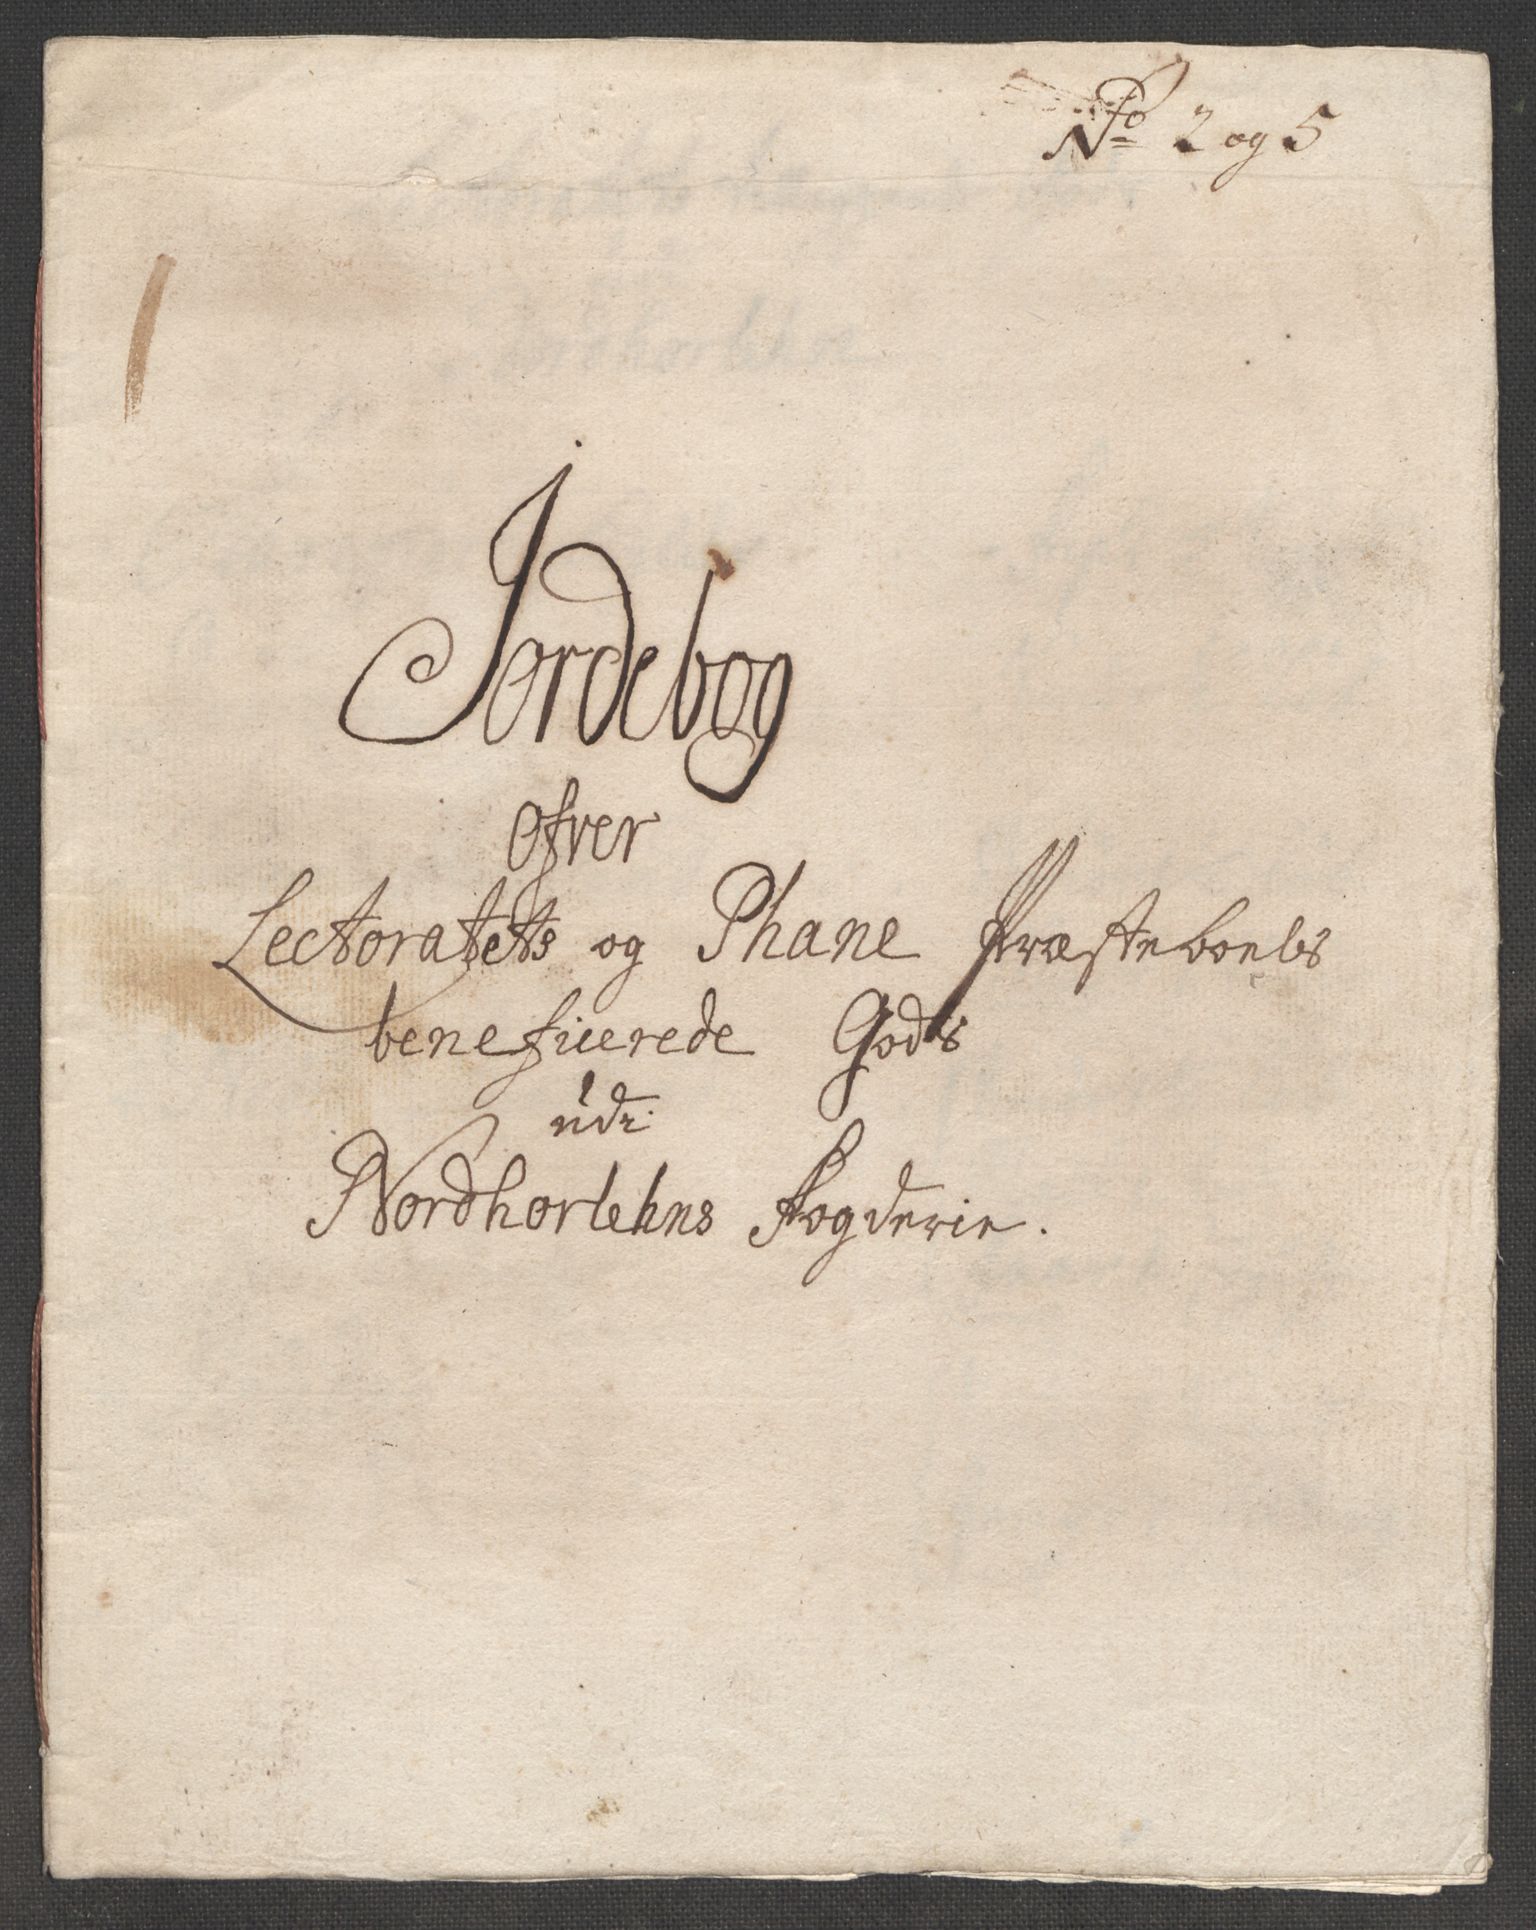 No 2 og 5
Jordebog
Ofver
Lectoratets og Phane Præsteboels
beneficerede Gods
udi
Nordhorlehns Fogderie.